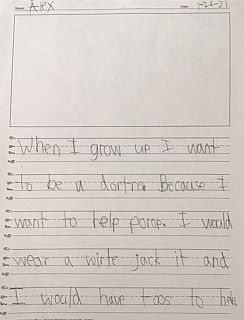 Name: Alex Date: 1-26-21
When I grow up I want
to be a dortre. Because I
want to help pomp. I would
wear a wirte jack it and
I would have toos to